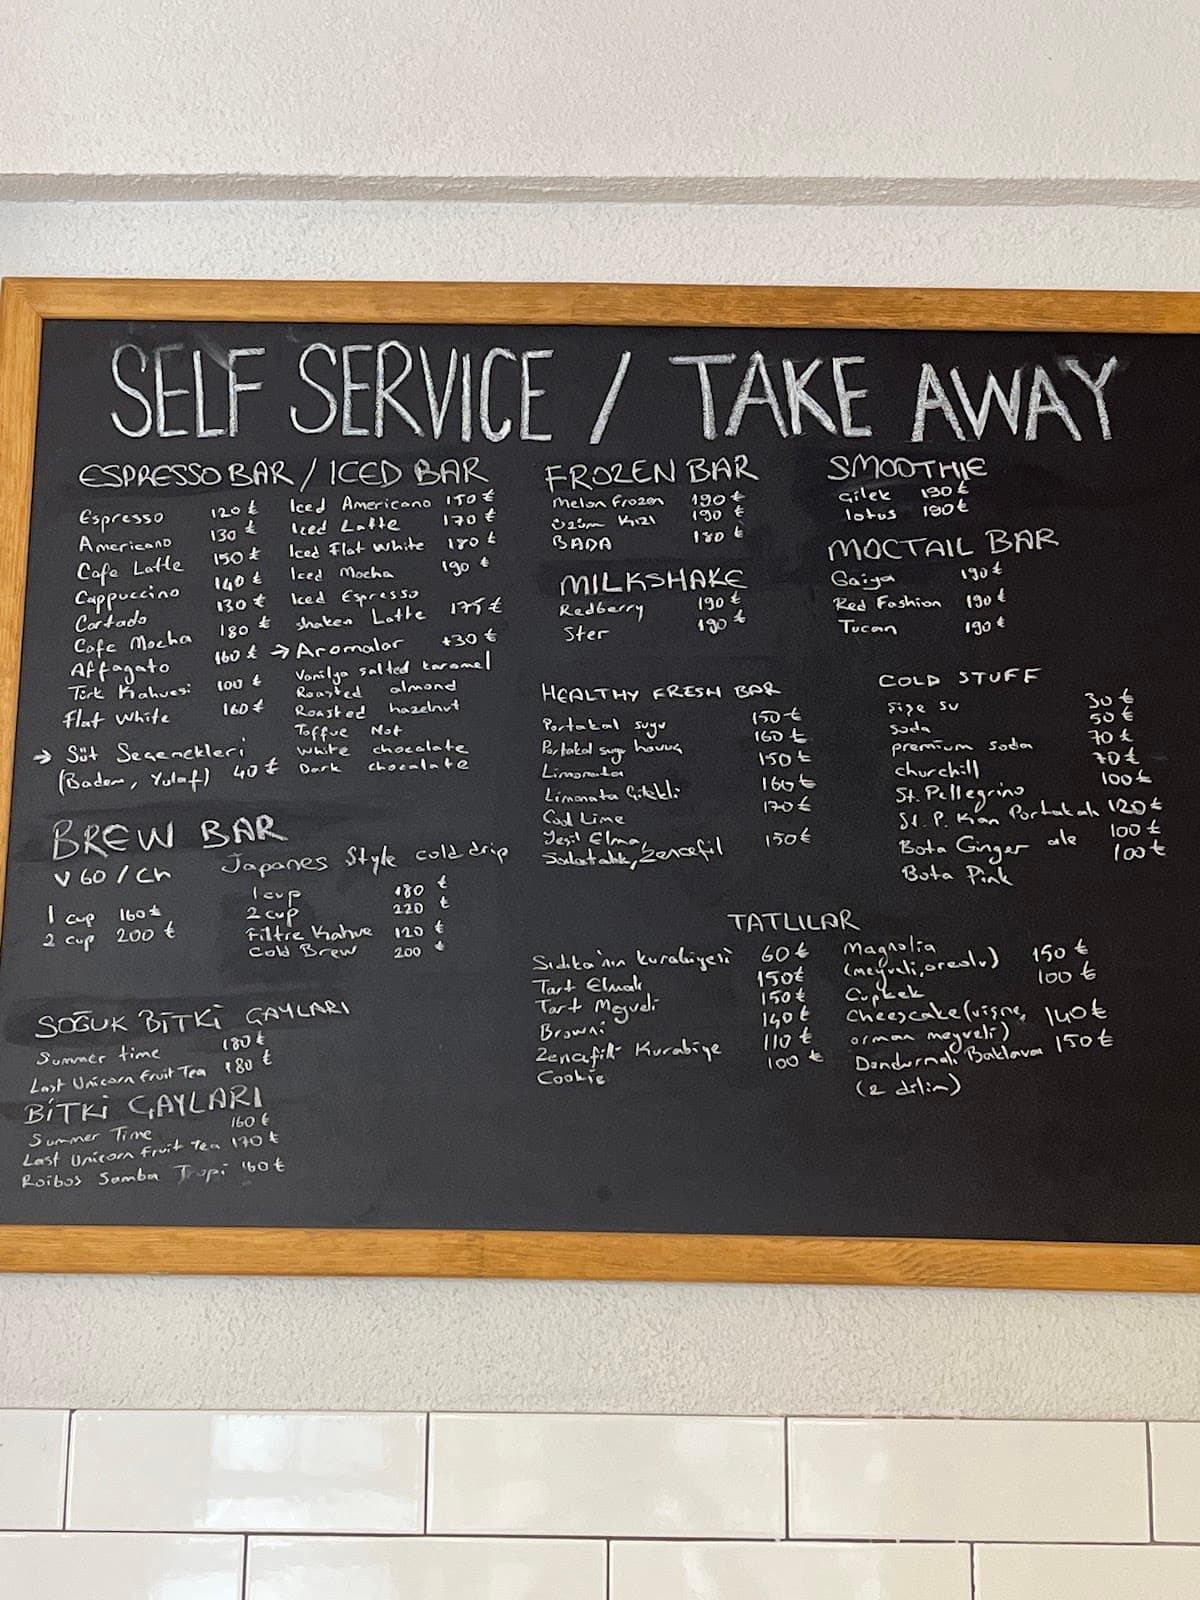 SELF SERVICE / TAKE AWAY
ESPRESSO BAR / ICED BAR
Espresso 120 ₺
Americano 130 ₺
Cafe Latte 150 ₺
Cappuccino 140 ₺
Cortado 130 ₺
Cafe Mocha 180 ₺
Affagato 160 ₺
Türk Kahvesi 100 ₺
Flat White 160 ₺
→ Süt Seçenekleri
(Badem, Yulaf) 40 ₺
Iced Americano 150 ₺
Iced Latte 170 ₺
Iced Flat White 180 ₺
Iced Mocha 190 ₺
Iced Espresso
shaken Latte 175 ₺
→ Aromalar +30 ₺
Vanilya salted karamel
Roasted almond
Roasted hazelnut
Toffue Not
White chocolate
Dark chocolate
BREW BAR
V60 / Ch
1 cup 160 ₺
2 cup 200 ₺
Japanes Style cold drip
1 cup 180 ₺
2 cup 220 ₺
Filtre Kahve 120 ₺
Cold Brew 200 ₺
SOĞUK BİTKİ ÇAYLARI
Summer time 180 ₺
Last Unicorn Fruit Tea 180 ₺
BİTKİ ÇAYLARI
Summer Time 160 ₺
Last Unicorn Fruit Tea 170 ₺
Roibos Samba Tropi 160 ₺
FROZEN BAR
Melon Frozen 190 ₺
Üzüm Kızı 190 ₺
BADA 180 ₺
MILKSHAKE
Redberry 190 ₺
Ster 190 ₺
HEALTHY FRESH BAR
Portakal suyu 150 ₺
Portakal suyu havuç 160 ₺
Limonata 150 ₺
Limonata Çilekli 160 ₺
Cool Lime 170 ₺
Yeşil Elma,
Salatalık, Zencefil 150 ₺
SMOOTHIE
Çilek 190 ₺
lotus 190 ₺
MOCTAIL BAR
Gaiya 190 ₺
Red Fashion 190 ₺
Tucan 190 ₺
COLD STUFF
Şişe su 30 ₺
Soda 50 ₺
premium soda 70 ₺
churchill 70 ₺
St. Pellegrino 100 ₺
St. P. Kan Portakalı 120 ₺
Bota Ginger ale 100 ₺
Bota Pink 100 ₺
TATLILAR
Sıdıka'nın kurabiyesi 60 ₺
Tart Elmalı 150 ₺
Tart Meyveli 150 ₺
Browni 140 ₺
Zencefilli Kurabiye 110 ₺
Cookie 100 ₺
Magnolia
(meyveli, oreolu) 150 ₺
Cupkek 100 ₺
Cheescake (vişne,
orman meyveli) 140 ₺
Dondurmalı Baklava 150 ₺
(2 dilim)